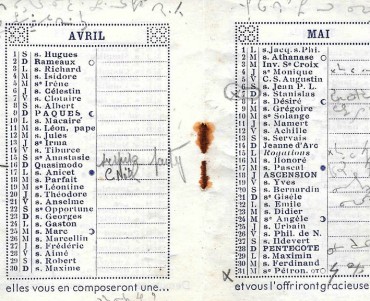 AVRIL
1 S s. Hugues
2 D Rameaux
3 L s. Richard
4 M s. Isidore
5 M sᵉ Irène
6 J s. Célestin
7 V s. Clotaire
8 S s. Albert
9 D PAQUES
10 L s. Macaire
11 M s. Léon, pape
12 M s. Jules
13 J sᵉ Irma
14 V s. Tiburce
15 S sᵉ Anastasie
16 D Quasimodo
17 L s. Anicet
18 M s. Parfait
19 M sᵉ Léontine
20 J s. Théodore
21 V s. Anselme
22 S sᵉ Opportune
23 D s. Georges
24 L s. Gaston
25 M s. Marc
26 M s. Marcellin
27 J s. Frédéric
28 V s. Aimé
29 S s. Robert
30 D s. Maxime
elles vous en composeront une...
MAI
1 L s. Jacq. s. Phil.
2 M s. Athanase
3 M Inv. Sᵉ Croix
4 J sᵉ Monique
5 V C. S. Augustin
6 S s. Jean P. L.
7 D s. Stanislas
8 L s. Désiré
9 M s. Grégoire
10 M sᵉ Solange
11 J s. Mamert
12 V s. Achille
13 S s. Servais
14 D Jeanne d'Arc
15 L Rogations
16 M s. Honoré
17 M s. Pascal
18 J ASCENSION
19 V s. Yves
20 S s. Bernardin
21 D sᵉ Gisèle
22 L s. Emile
23 M s. Didier
24 M sᵉ Angèle
25 J s. Urbain
26 V s. Phil. de N.
27 S s. Ildevert
28 D PENTECOTE
29 L s. Maximin
30 M s. Ferdinand
31 M sᵉ Pétron. QTO
et vous l'offriront gracieuse